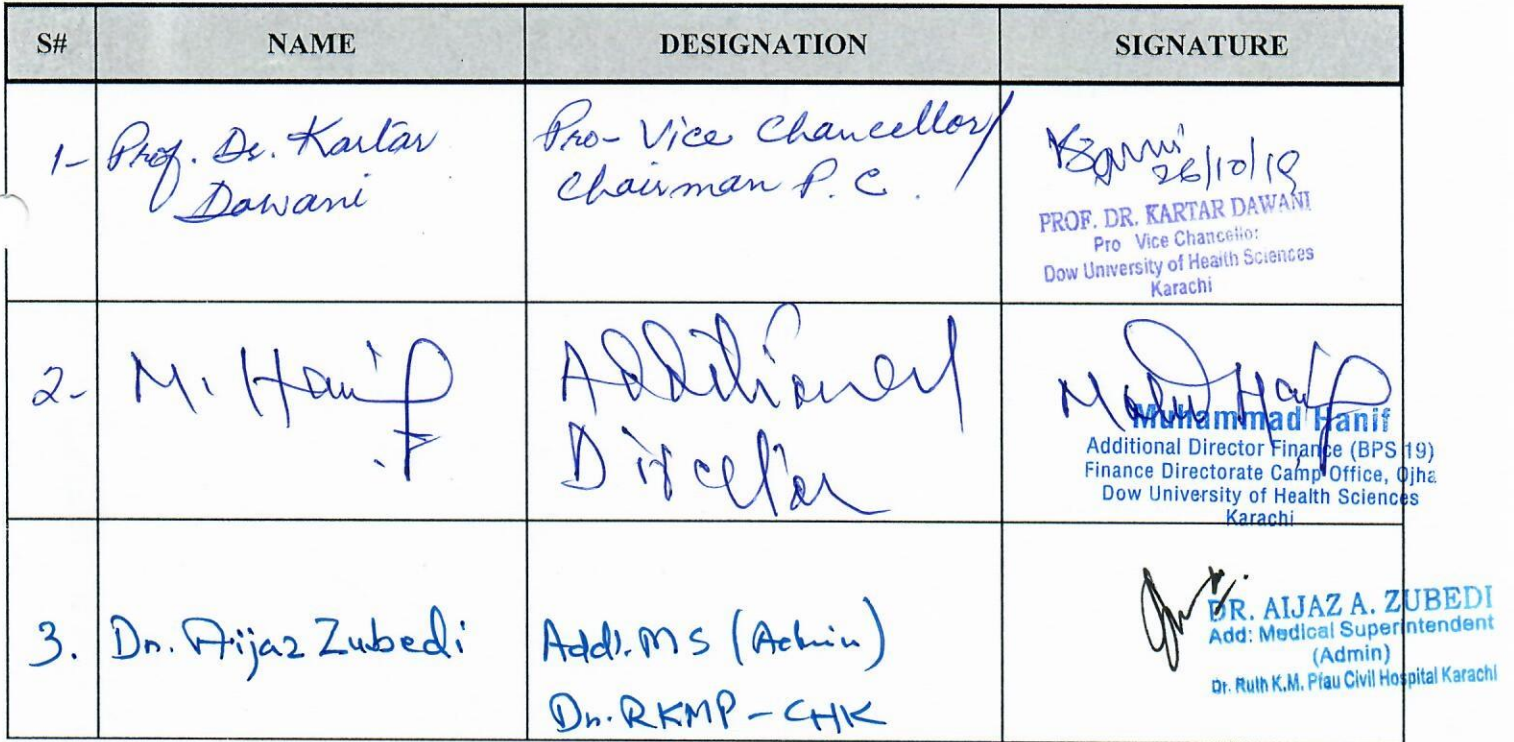 S# NAME DESIGNATION SIGNATURE
1- Prof. Dr. Kartar
Dawani
Pro-Vice Chancellor/
Chairman P.C.
26/10/19
PROF. DR. KARTAR DAWANI
Pro Vice Chancellor
Dow University of Health Sciences
Karachi
2- M. Hanif
Additional
Director
Muhammad Hanif
Additional Director Finance (BPS 19)
Finance Directorate Camp Office, Ojha
Dow University of Health Sciences
Karachi
3. Dr. Aijaz Zubedi
Addl. MS (Admin)
Dr. RKMP - CHK
DR. AIJAZ A. ZUBEDI
Add: Medical Superintendent
(Admin)
Dr. Ruth K.M. Pfau Civil Hospital Karachi